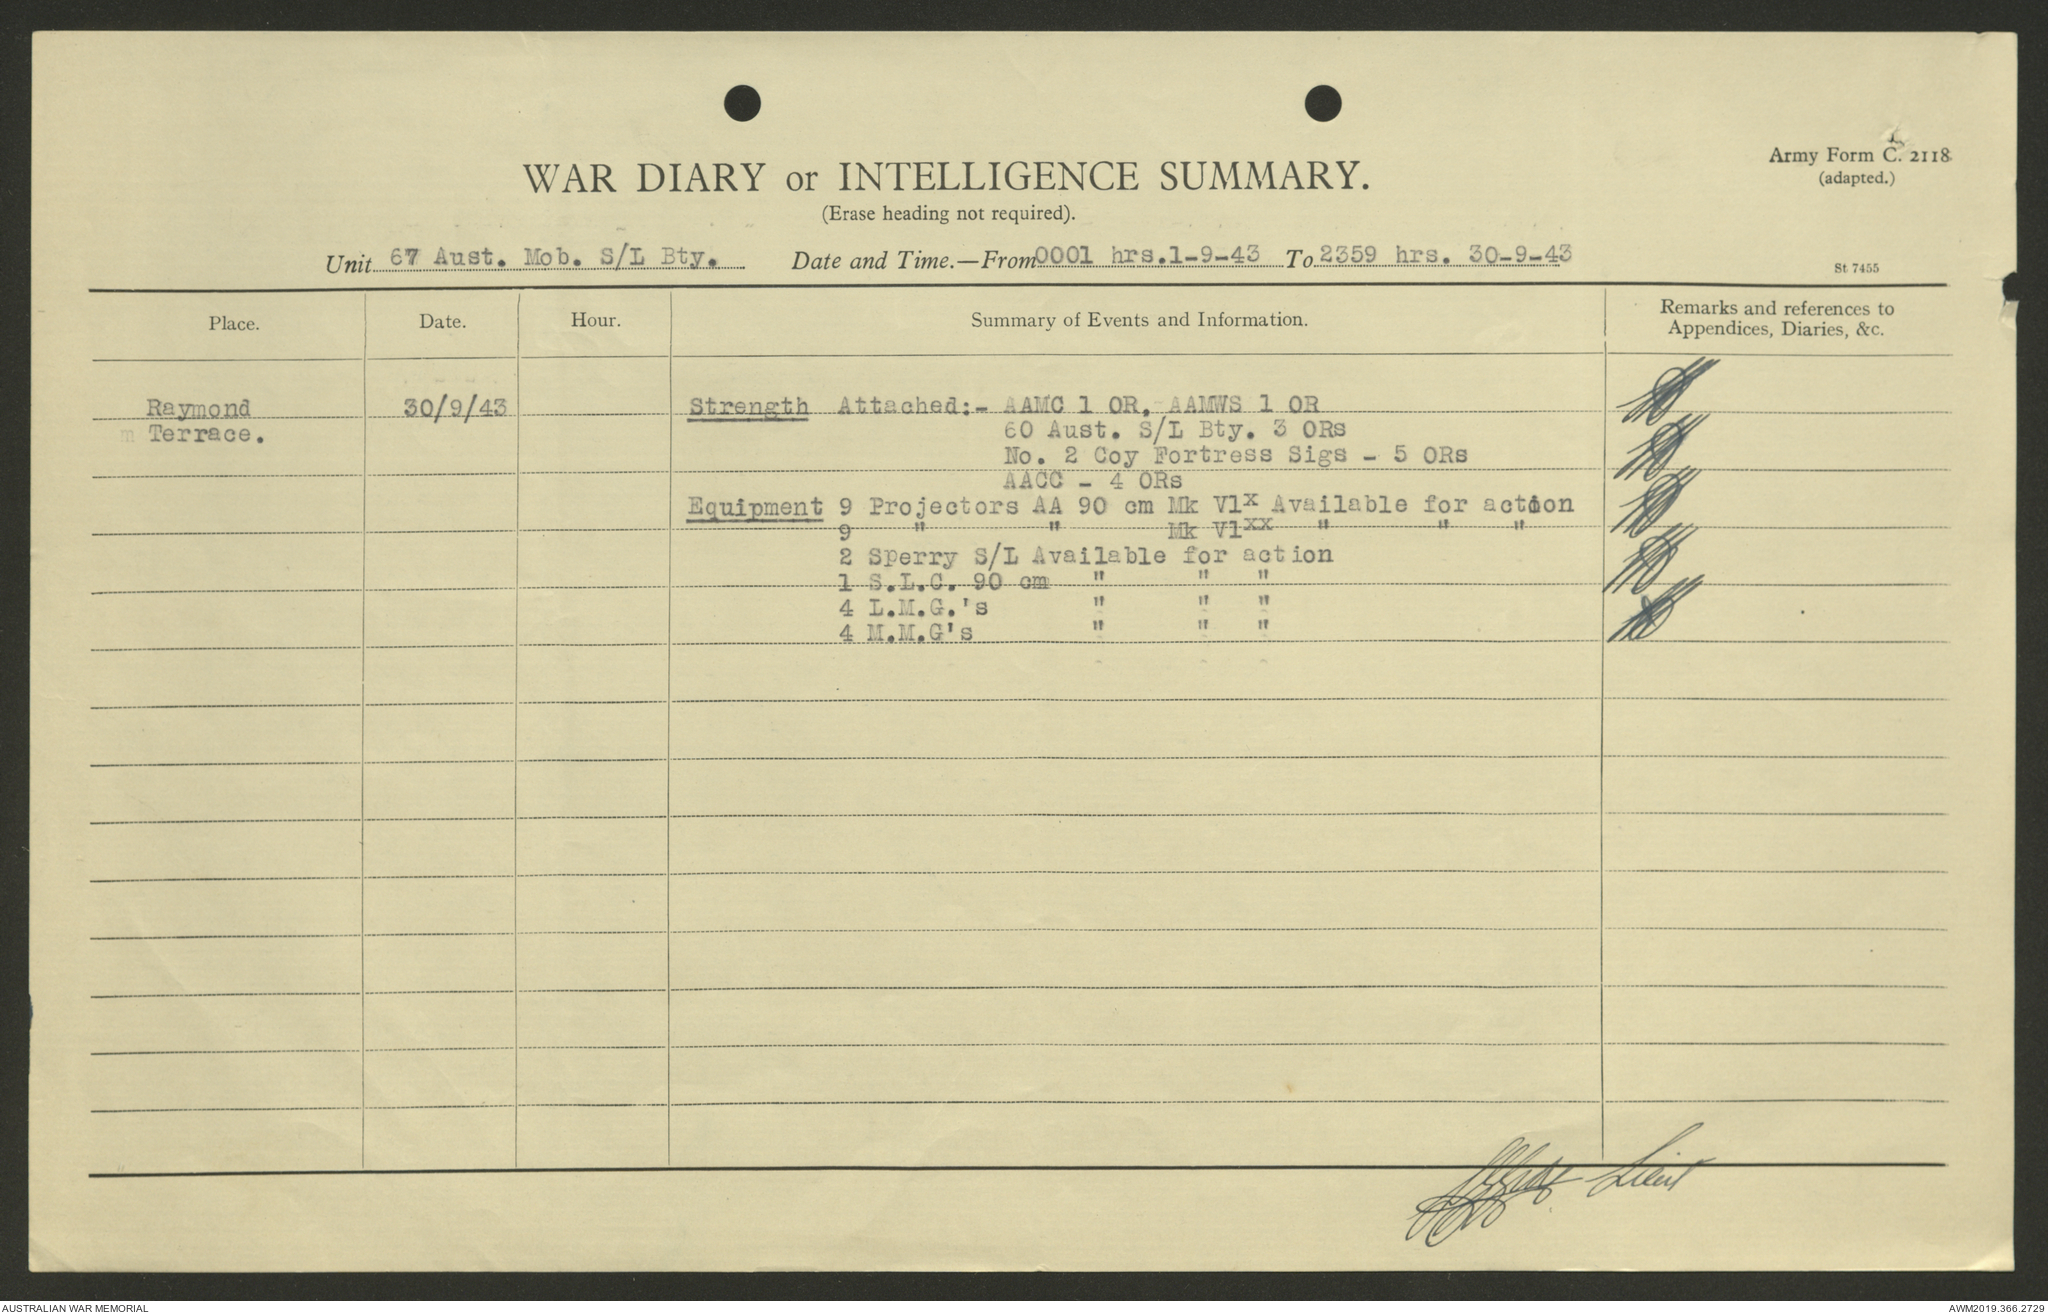 Army Form C. 2118
(adapted.)
WAR DIARY or INTELLIGENCE SUMMARY.
(Erase heading not required).
Unit 67 Aust. Mob. S/L Bty. Date and Time.—From 0001 hrs.1-9-43 To 2359 hrs. 30-9-43
St 7455
Place. Date. Hour. Summary of Events and Information. Remarks and references to
Appendices, Diaries, &c.
Raymond 30/9/43 Strength Attached:- AAMC 1 OR, AAMWS 1 OR
Terrace. 60 Aust. S/L Bty. 3 ORs
No. 2 Coy Fortress Sigs - 5 ORs
AACC - 4 ORs
Equipment 9 Projectors AA 90 cm Mk Vl x Available for action
9 " " Mk Vl xx " " "
2 Sperry S/L Available for action
1 S.L.C. 90 cm " " "
4 L.M.G.'s " " "
4 M.M.G's " " "
Lieut
AUSTRALIAN WAR MEMORIAL AWM2019.366.2729